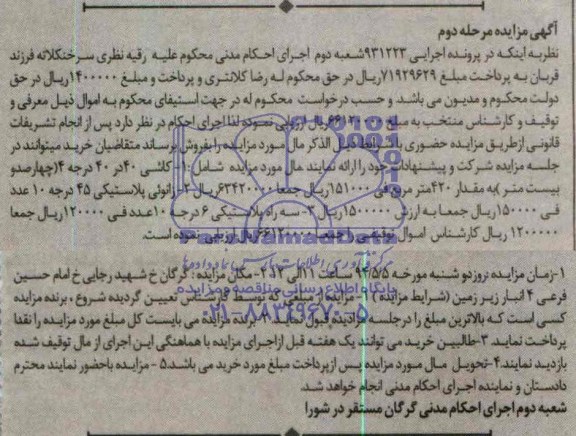 آگهی مزایده مرحله دوم
نظر به اینکه در پرونده اجرایی ۹۳۱۲۲۳ شعبه دوم اجرای احکام مدنی محکوم علیه رقیه نظری سرخنکلاته فرزند
قربان به پرداخت مبلغ ۷۱۹۲۹۶۲۹ ریال در حق محکوم له رضا کلانتری و پرداخت و مبلغ ۱۴۰۰۰۰۰ ریال در حق
دولت محکوم و مدیون می باشد و حسب درخواست محکوم له در جهت استیفای محکوم به اموال ذیل معرفی و
توقیف و کارشناس منتخب به مبلغ ۶۶۱۲۰۰۰۰ ریال ارزیابی نموده لذا اجرای احکام در نظر دارد پس از انجام تشریفات
قانونی از طریق مزایده حضوری با شرایط ذیل الذکر مال مورد مزایده را بفروش برساند متقاضیان خرید میتوانند در
جلسه مزایده شرکت و پیشنهادات خود را ارائه نمایند مال مورد مزایده شامل :۱- کاشی ۴۰ در ۴۰ درجه ۴(چهارصدو
بیست متر )به مقدار ۴۲۰ متر مربع فی ۱۵۱۰۰۰ ریال جمعا ۶۳۴۲۰۰۰۰ ریال ۲- زانوئی پلاستیکی ۴۵ درجه ۱۰ عدد
فی ۱۵۰۰۰۰ ریال جمعا به ارزش ۱۵۰۰۰۰۰ ریال ۳- سه راه پلاستیکی ۶ درجه ۱۰ عدد فی ۱۲۰۰۰۰ ریال جمعا
۱۲۰۰۰۰۰ ریال کارشناس اموال توقیفی را جمعا ۶۶۱۲۰۰۰۰ ریال ارزیابی نموده است.
۱-زمان مزایده :روز دو شنبه مورخه ۹۴/۵/۵ ساعت ۱۱ الی ۱۲ ۲- مکان مزایده : گرگان خ شهید رجایی خ امام حسین
فرعی ۴ انبار زیر زمین (شرایط مزایده ) ۱- مزایده از مبلغی که توسط کارشناس تعیین گردیده شروع ، برنده مزایده
کسی است که بالاترین مبلغ را در جلسه مزایده قبول نماید ۲- برنده مزایده می بایست کل مبلغ مورد مزایده را نقدا
پرداخت نماید. ۳-طالبین خرید می توانند یک هفته قبل از اجرای مزایده با هماهنگی این اجرای از مال توقیف شده
بازدید نمایند.۴-تحویل مال مورد مزایده پس از پرداخت مبلغ مورد خرید می باشد.۵ - مزایده با حضور نماینده محترم
دادستان و نماینده اجرای احکام مدنی انجام خواهد شد.
شعبه دوم اجرای احکام مدنی گرگان مستقر در شورا
ParsNamadData
پایگاه اطلاع رسانی مناقصه و مزایده
۰۲۱-۸۸۳۴۹۶۷۰-۵